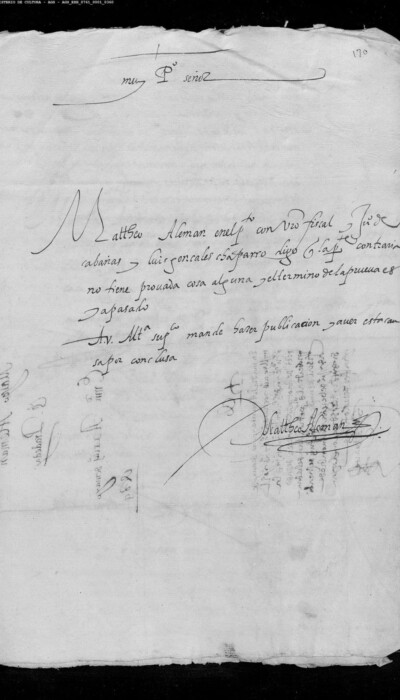 MINISTERIO DE CULTURA - AGN - AGN_RRE_0745_0001_0360
170
muy P.o señor
Mattheo Aleman en el p.to con vro fiscal y Ju.o de
cabañas y luis gonçales chaparro digo q la p.te contraria
no tiene provada cosa alguna y el termino de la prueva es
ya pasado
A v. Alt.a sup.co mande haser publicacion y aver esta cau
sa por conclusa
Mattheo Aleman